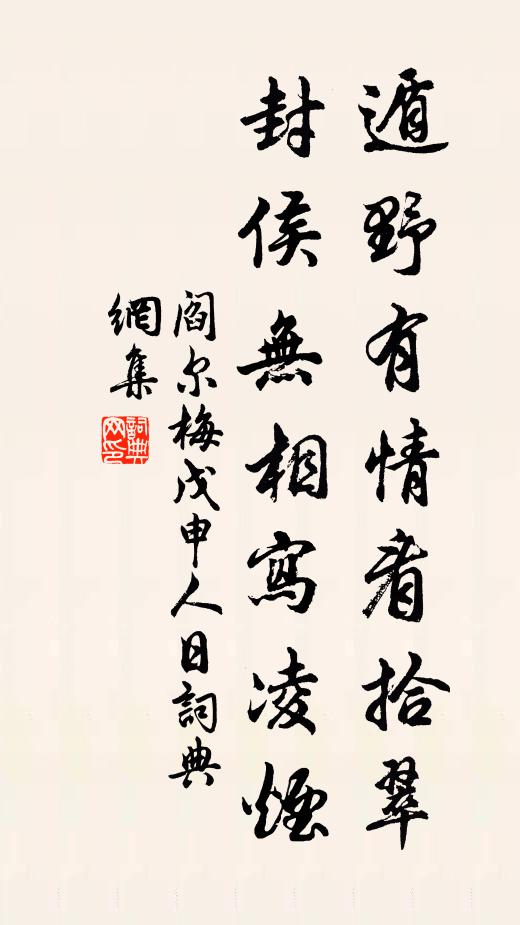 遁野有情看拾翠
封侯無相寫凌煙
阎尔梅戊申人日詞典
網集
詞典网印